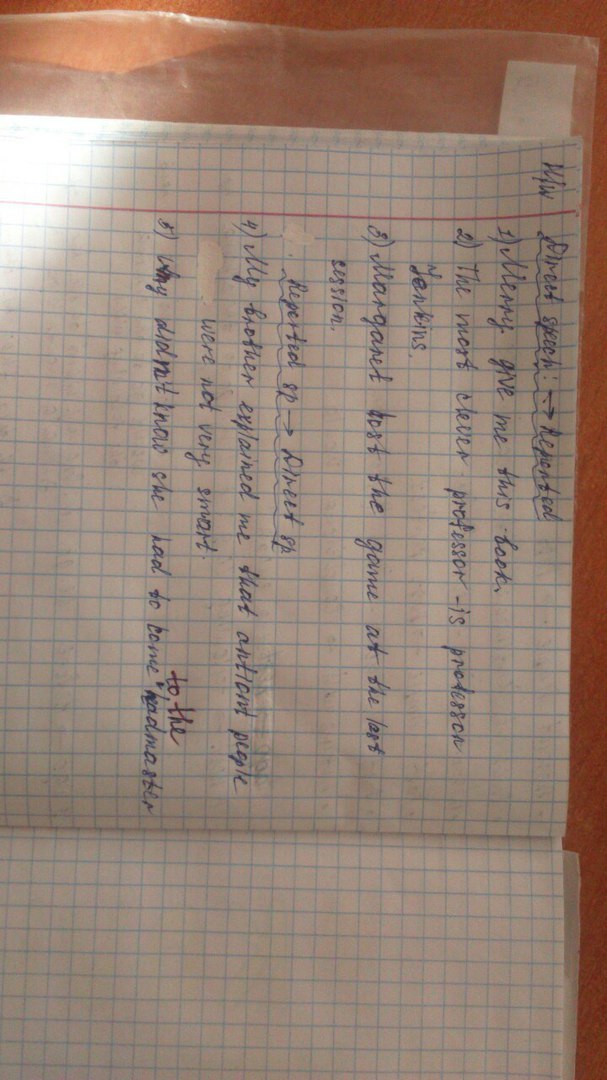 H/w Direct speech: → Reported
1) Merry, give me this book.
2) The most clever professor - is professor
Jenkins.
3) Margaret lost the game at the last
session.
Reported sp → Direct sp
4) My brother explained me that antiont people
were not very smart.
to the
5) Why didn't know she had to come headmaster